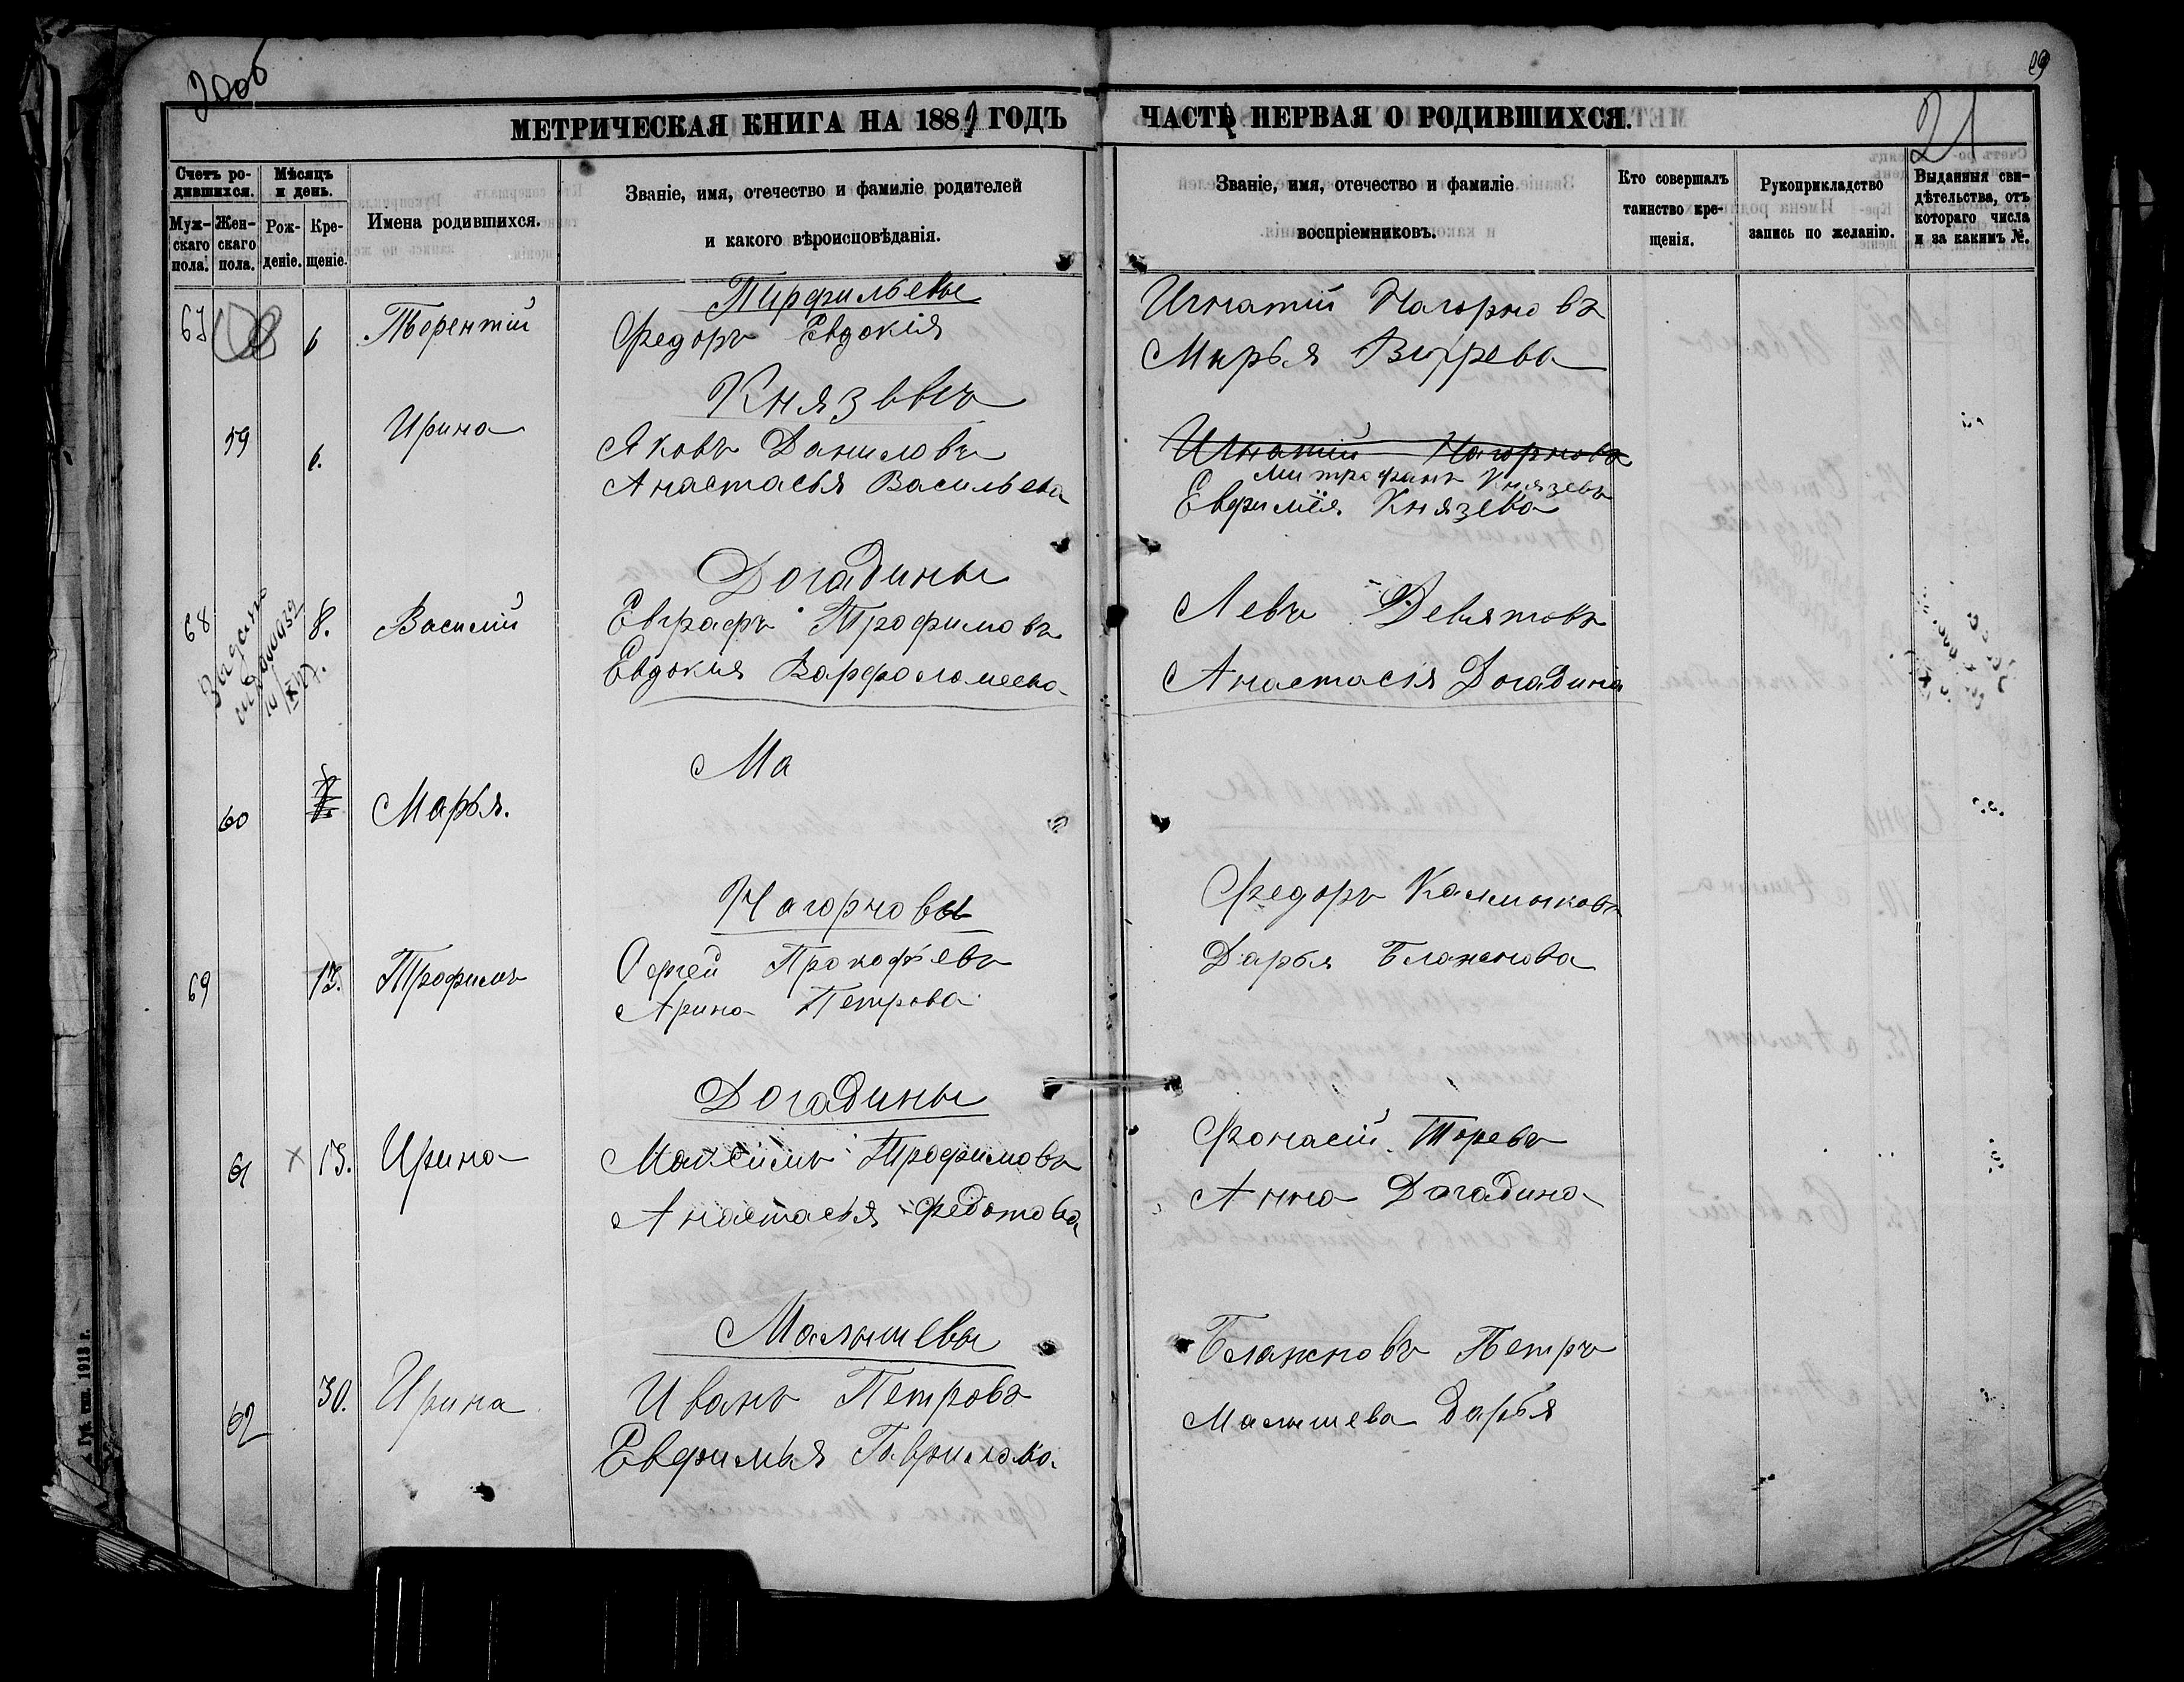 20об
19
21
МЕТРИЧЕСКАЯ КНИГА НА 1889 ГОДЪ
ЧАСТЬ ПЕРВАЯ О РОДИВШИХСЯ.
Счетъ ро-
дившихся.
Мѣсяцъ
и день.
Муж-
скаго
пола.
Жен-
скаго
пола.
Рож-
деніе.
Кре-
щеніе.
Имена родившихся.
Званіе, имя, отечество и фамиліе родителей
и какого вѣроисповѣданія.
Званіе, имя, отечество и фамиліе
воспріемниковъ.
Кто совершалъ
таинство кре-
щенія.
Рукоприкладство
запись по желанію.
Выданныя сви-
дѣтельства, отъ
котораго числа
и за какимъ №.
Пирфильевы
67 6 Терентій Федоръ Евдокія
Игнатій Нагорновъ
Марья
Князевы
59 6. Ирина Яковъ Даниловъ
Анастасья Васильева
Игнатій Нагорновъ
Митрофанъ Князевъ
Евфимія Князева
Догадины
68 8. Василій Евграфъ Трофимовъ
Евдокия Варфоломеева
Левъ Девятовъ
Анастасія Догадина
Ма
60 Марья.
Нагорновы
69 13. Трофимъ Сергей Прокофьевъ
Арина Петрова
Федоръ Калмыковъ
Дарья Блажнова
Догадины
61 13. Ирина Максимъ Трофимовъ
Анастасья Федотова
Фонасій
Анна Догадина
Малышевы
62 30. Ирина Иванъ Петровъ
Евфимья Гаврилова.
Блажновъ Петръ
Малышева Дарья
Губ. тип. 1918 г.